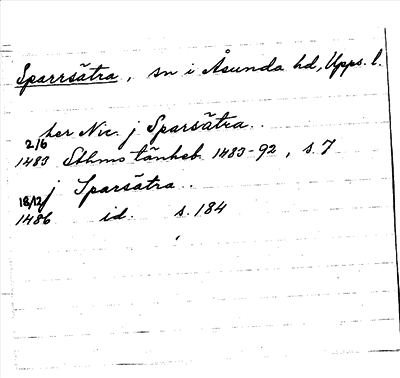 Sparrsätra, sn i Åsunda hd, Upps. l.
her Nic. j Sparsätra..
2/6
1483 Sthms tänkeb. 1483-92, s. 7
j Sparsätra..
18/12
1486 id. s. 184